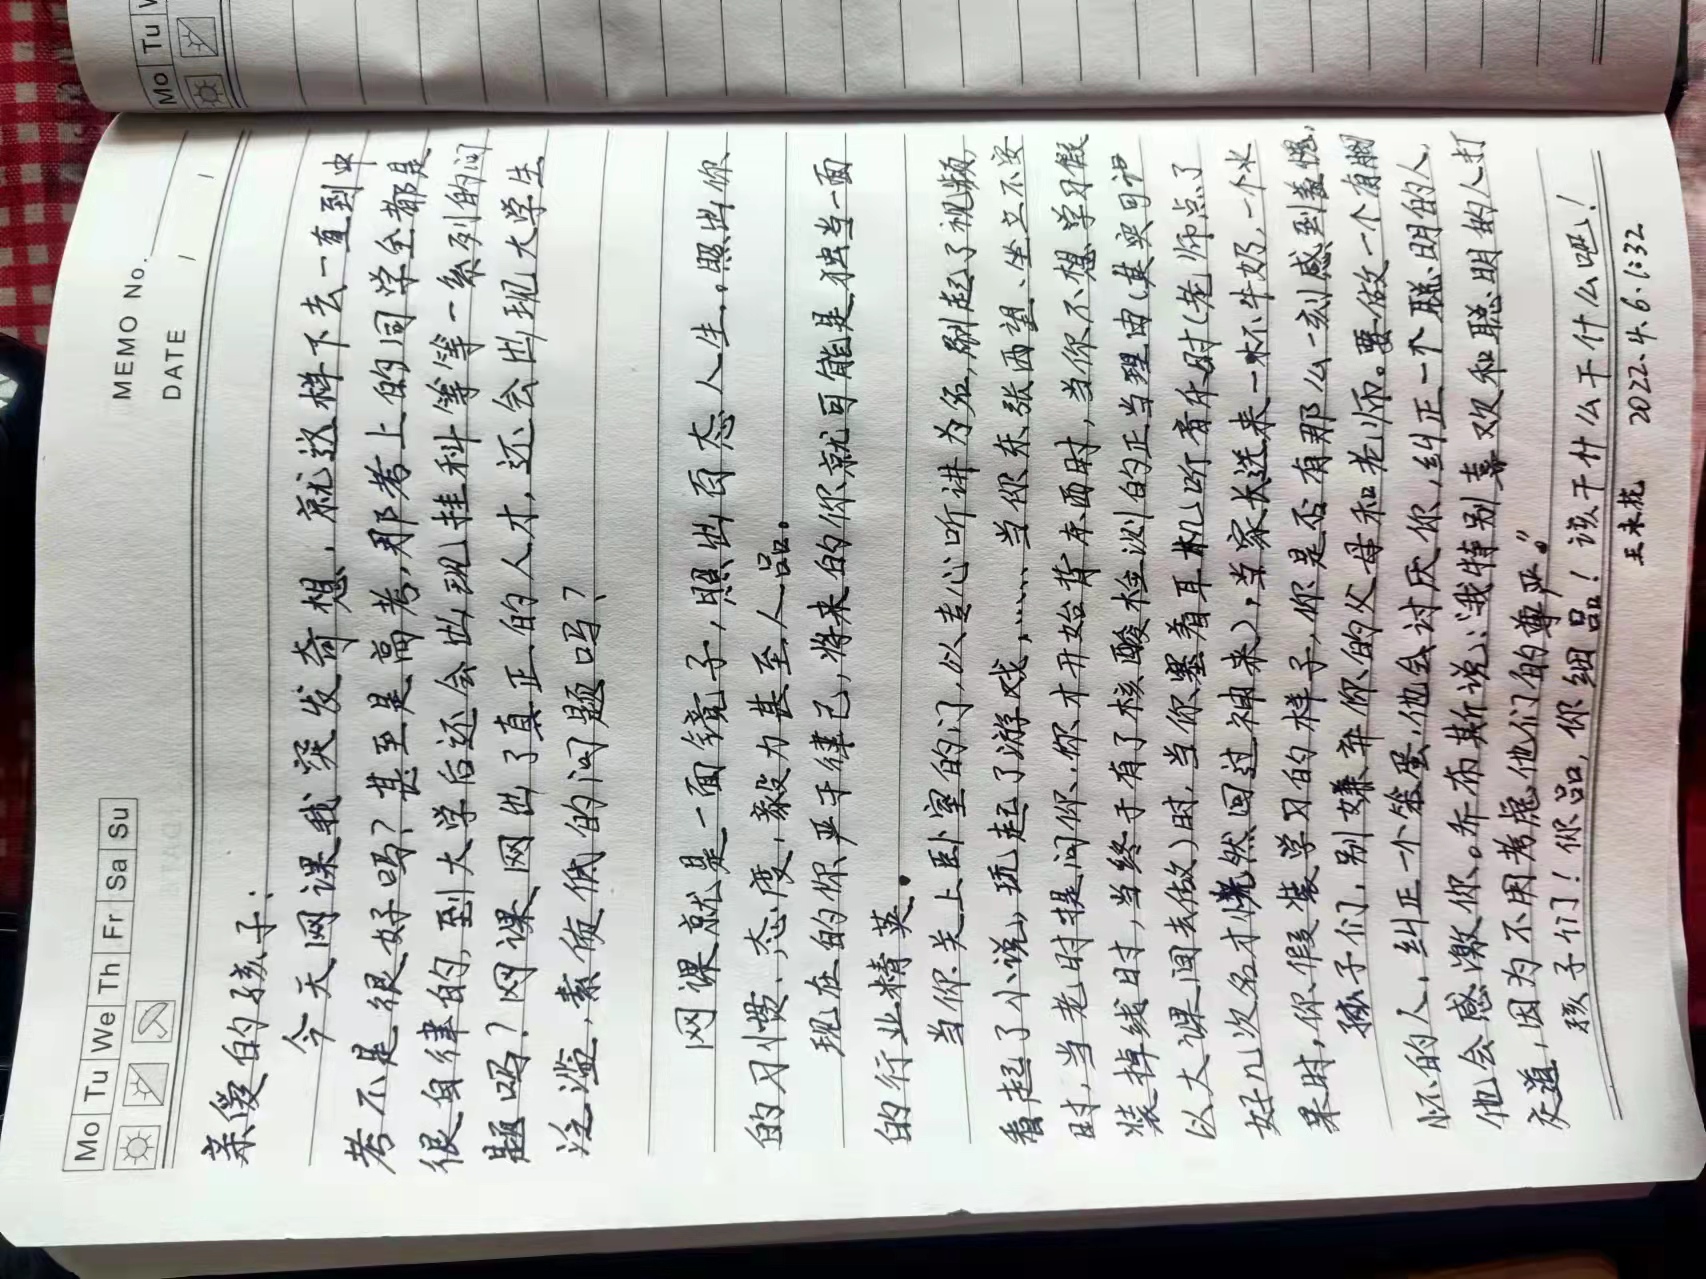 Mo Tu
Mo Tu We Th Fr Sa Su
MEMO No.
DATE / /
亲爱的孩子：
今天网课我突发奇想，就这样下去一直到中
考不是很好吗？甚至是高考，那考上的同学全都是
很自律的，到大学后还会出现挂科等等一系列的问
题吗？网课网出了真正的人才，还会出现大学生
泛滥，素质低的问题吗？
网课就是一面镜子，照出百态人生。照出你
的习惯、态度，毅力甚至人品。
现在的你严于律己，将来的你就可能是独当一面
的行业精英。
当你关上卧室的门，以专心听讲为名，刷起了视频，
看起了小说，玩起了游戏，……当你东张西望、坐立不安
时，当老时提问你，你才开始背东西时，当你不想学习假
装掉线时，当终于有了核酸检测的正当理由（其实可
以大课间去做）时，当你塞着耳机听音乐时（老师点了
好几次名才恍然回过神来），当家长送来一杯牛奶，一个水
果时，你假装学习的样子，你是否有那么一刻感到羞愧，
孩子们，别嫌弃你的父母和老师。要做一个有胸
怀的人，纠正一个笨蛋，他会讨厌你，纠正一个聪明的人，
他会感激你。乔布斯说：“我特别喜欢和聪明的人打
交道，因为不用考虑他们的尊严。”
孩子们！你品，你细品！该干什么干什么吧！
王来花 2022.4.6.1:32